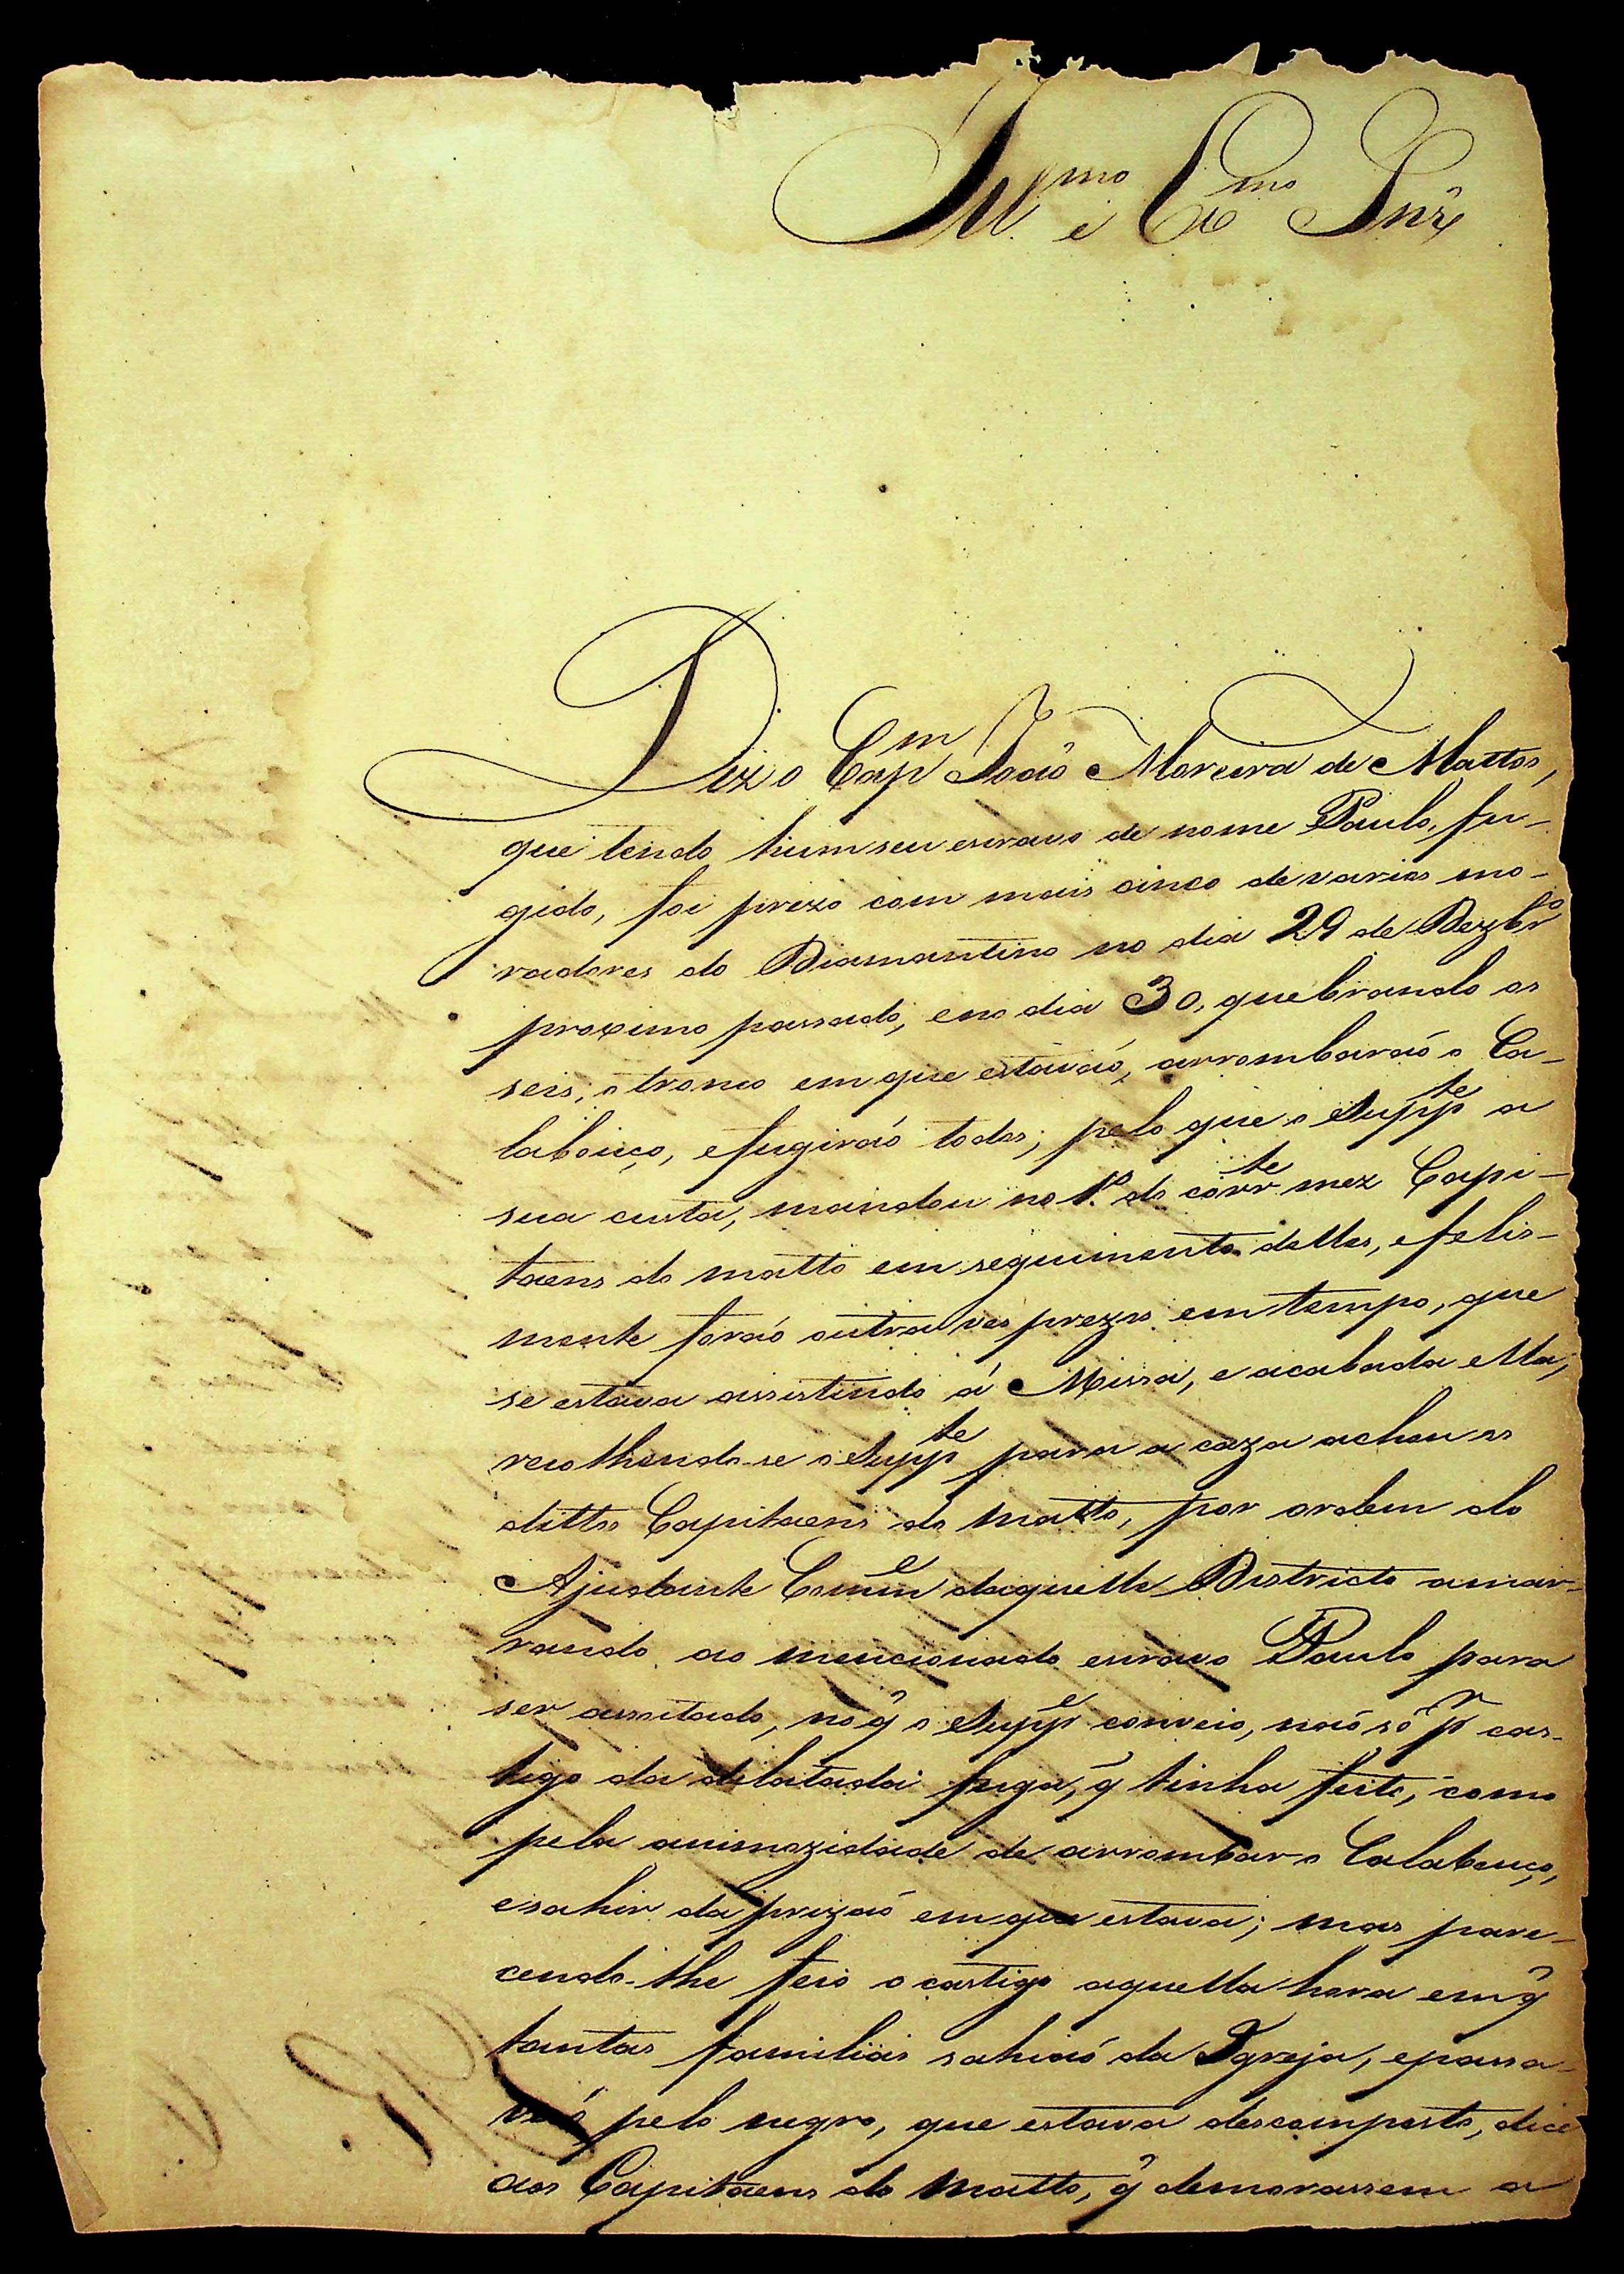 Ill.mo e Ex.mo Snr.
Diz o Cap.m Joaõ Moreira de Mattos,
que tendo hum seu escravo de nome Paulo, fu-
gido, foi prezo com mais cinco de varios mo-
radores do Diamantino no dia 29 de Dezbr.o
proximo passado, e no dia 30, quebrando os
seis, o tronco em que estavaó, arrombaraó o Ca-
labouço, e fugiraó todos; pelo que o Supp.te a
sua custa, mandou no 1.º do corr.te mez Capi-
taens do matto em seguimento delles, e felis-
mente foraó outra ves prezos em tempo, que
se estava assistindo á Missa, e acabada ella,
recolhendo-se o Supp.te para a caza achou os
dittos Capitaens do Matto, por ordem do
Ajudante Comm.e daquelle Districto amar-
rando ao mencionado escravo Paulo para
ser assoitado, no q̃ o Supp.e conveio, naó só p.r cas-
tigo da dilatada fuga, q̃ tinha feito, como
pela animozidade de arrombar o Calabouço,
e sahir da prizaó em que estava; mas pare-
cendo-lhe feio o castigo aquella hora em q̃
tantas familias sahiaó da Igreja, e passa-
vaó pelo negro, que estava descomposto, dice
aos Capitaens do Matto, q̃ demorassem o